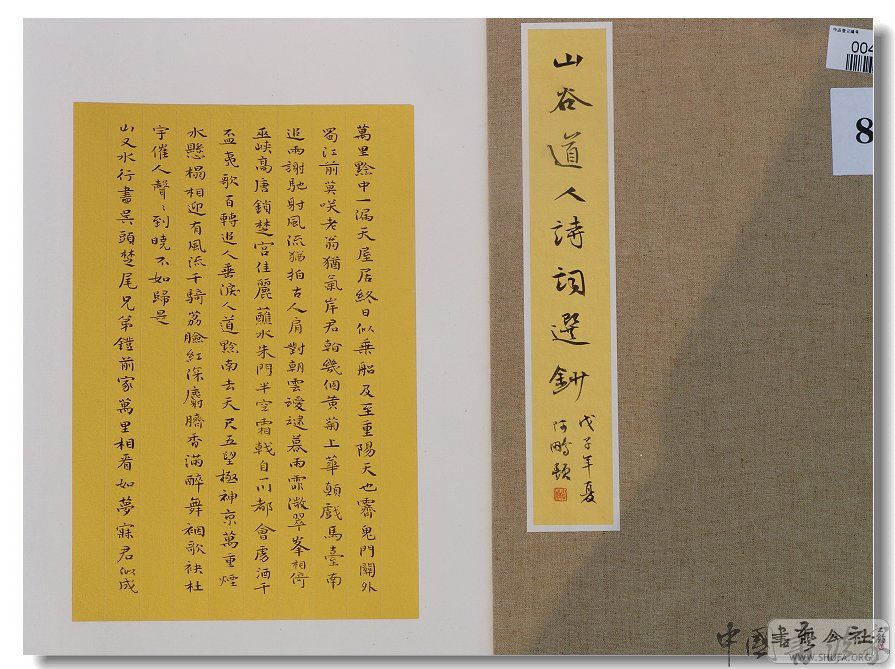 山谷道人詩詞選鈔
戊子年夏
何鵬題
萬里黔中一漏天屋居終日似乘船及至重陽天也霽鬼門關外
蜀江前莫咲老翁猶氣岸君幾個黃菊上華顛戲馬臺南
追兩謝馳射風流猶拍古人肩對朝雲靉靆暮雨霏微翠峯相倚
巫峽高唐鎖楚宮佳麗蘸水朱門半空霜戟自一川都會虜酒千
盃夷歌百轉迫人垂淚人道黔南去天尺五望極神京萬重煙
水懸榻相迎有風流千騎荔臉紅深麝臍香滿醉舞裀歌袂杜
宇催人聲〻到曉不如歸是
山又水行盡吳頭楚尾兄弟鐙前家萬里相看如夢寐君似成
004
8
中国書藝公社
WWW.SHUFA.ORG